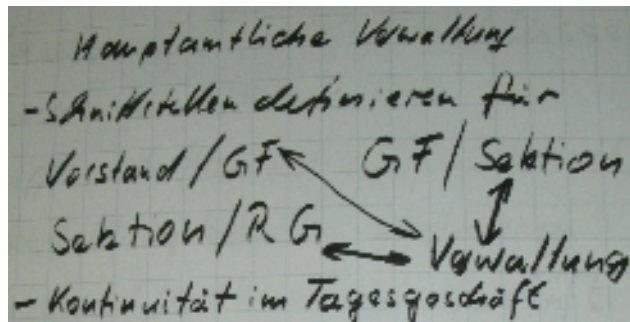 Hauptamtliche Verwaltung
- Schnittstellen definieren für
Vorstand / GF GF / Sektion
Sektion / RG Verwaltung
- Kontinuität im Tagesgeschäft